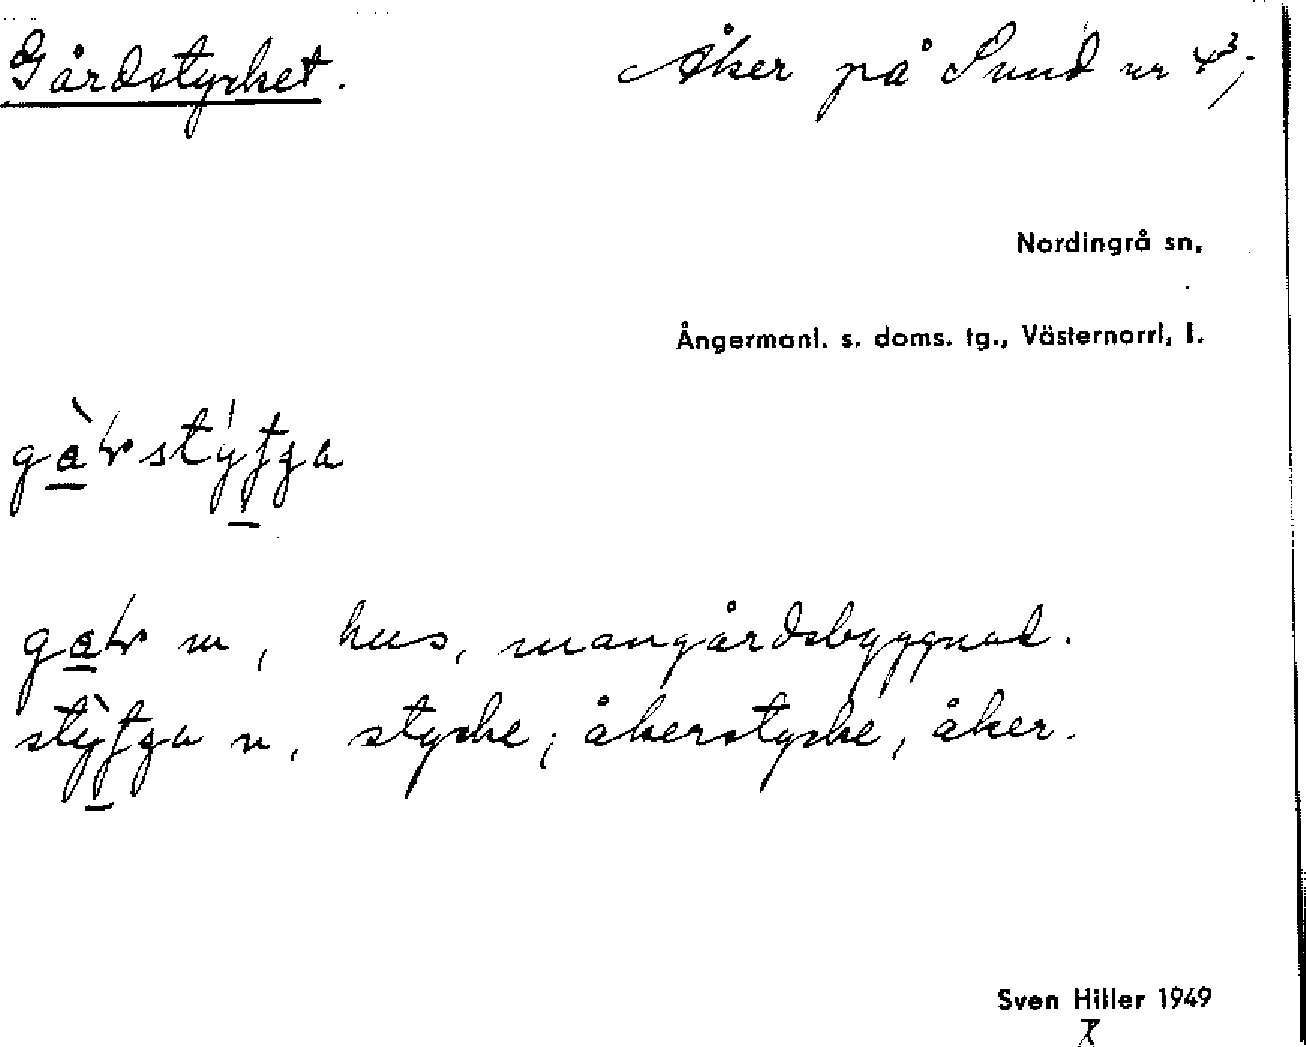 Gårdstycket. Åker på Sund nr 4³;
Nordingrå sn.
Ångermanl. s. doms. tg., Västernorrl. l.
m, hus, mangårdsbyggnad.
n, stycke; åkerstycke, åker.
Sven Hiller 1949